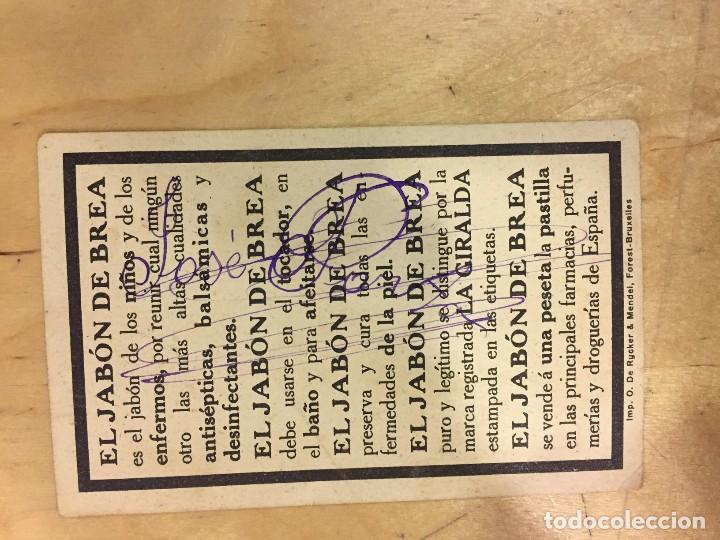 EL JABÓN DE BREA
es el jabón de los niños y de los
enfermos, por reunir cual ningún
otro las más altas cualidades
antisépticas, balsámicas y
desinfectantes.
EL JABÓN DE BREA
debe usarse en el tocador, en
el baño y para afeitarse.
EL JABÓN DE BREA
preserva y cura todas las en-
fermedades de la piel.
EL JABÓN DE BREA
puro y legítimo se distingue por la
marca registrada LA GIRALDA
estampada en las etiquetas.
EL JABÓN DE BREA
se vende á una peseta la pastilla
en las principales farmacias, perfu-
merías y droguerías de España.
Imp. O. De Rycker & Mendel, Forest-Bruxelles
José
todocoleccion.net